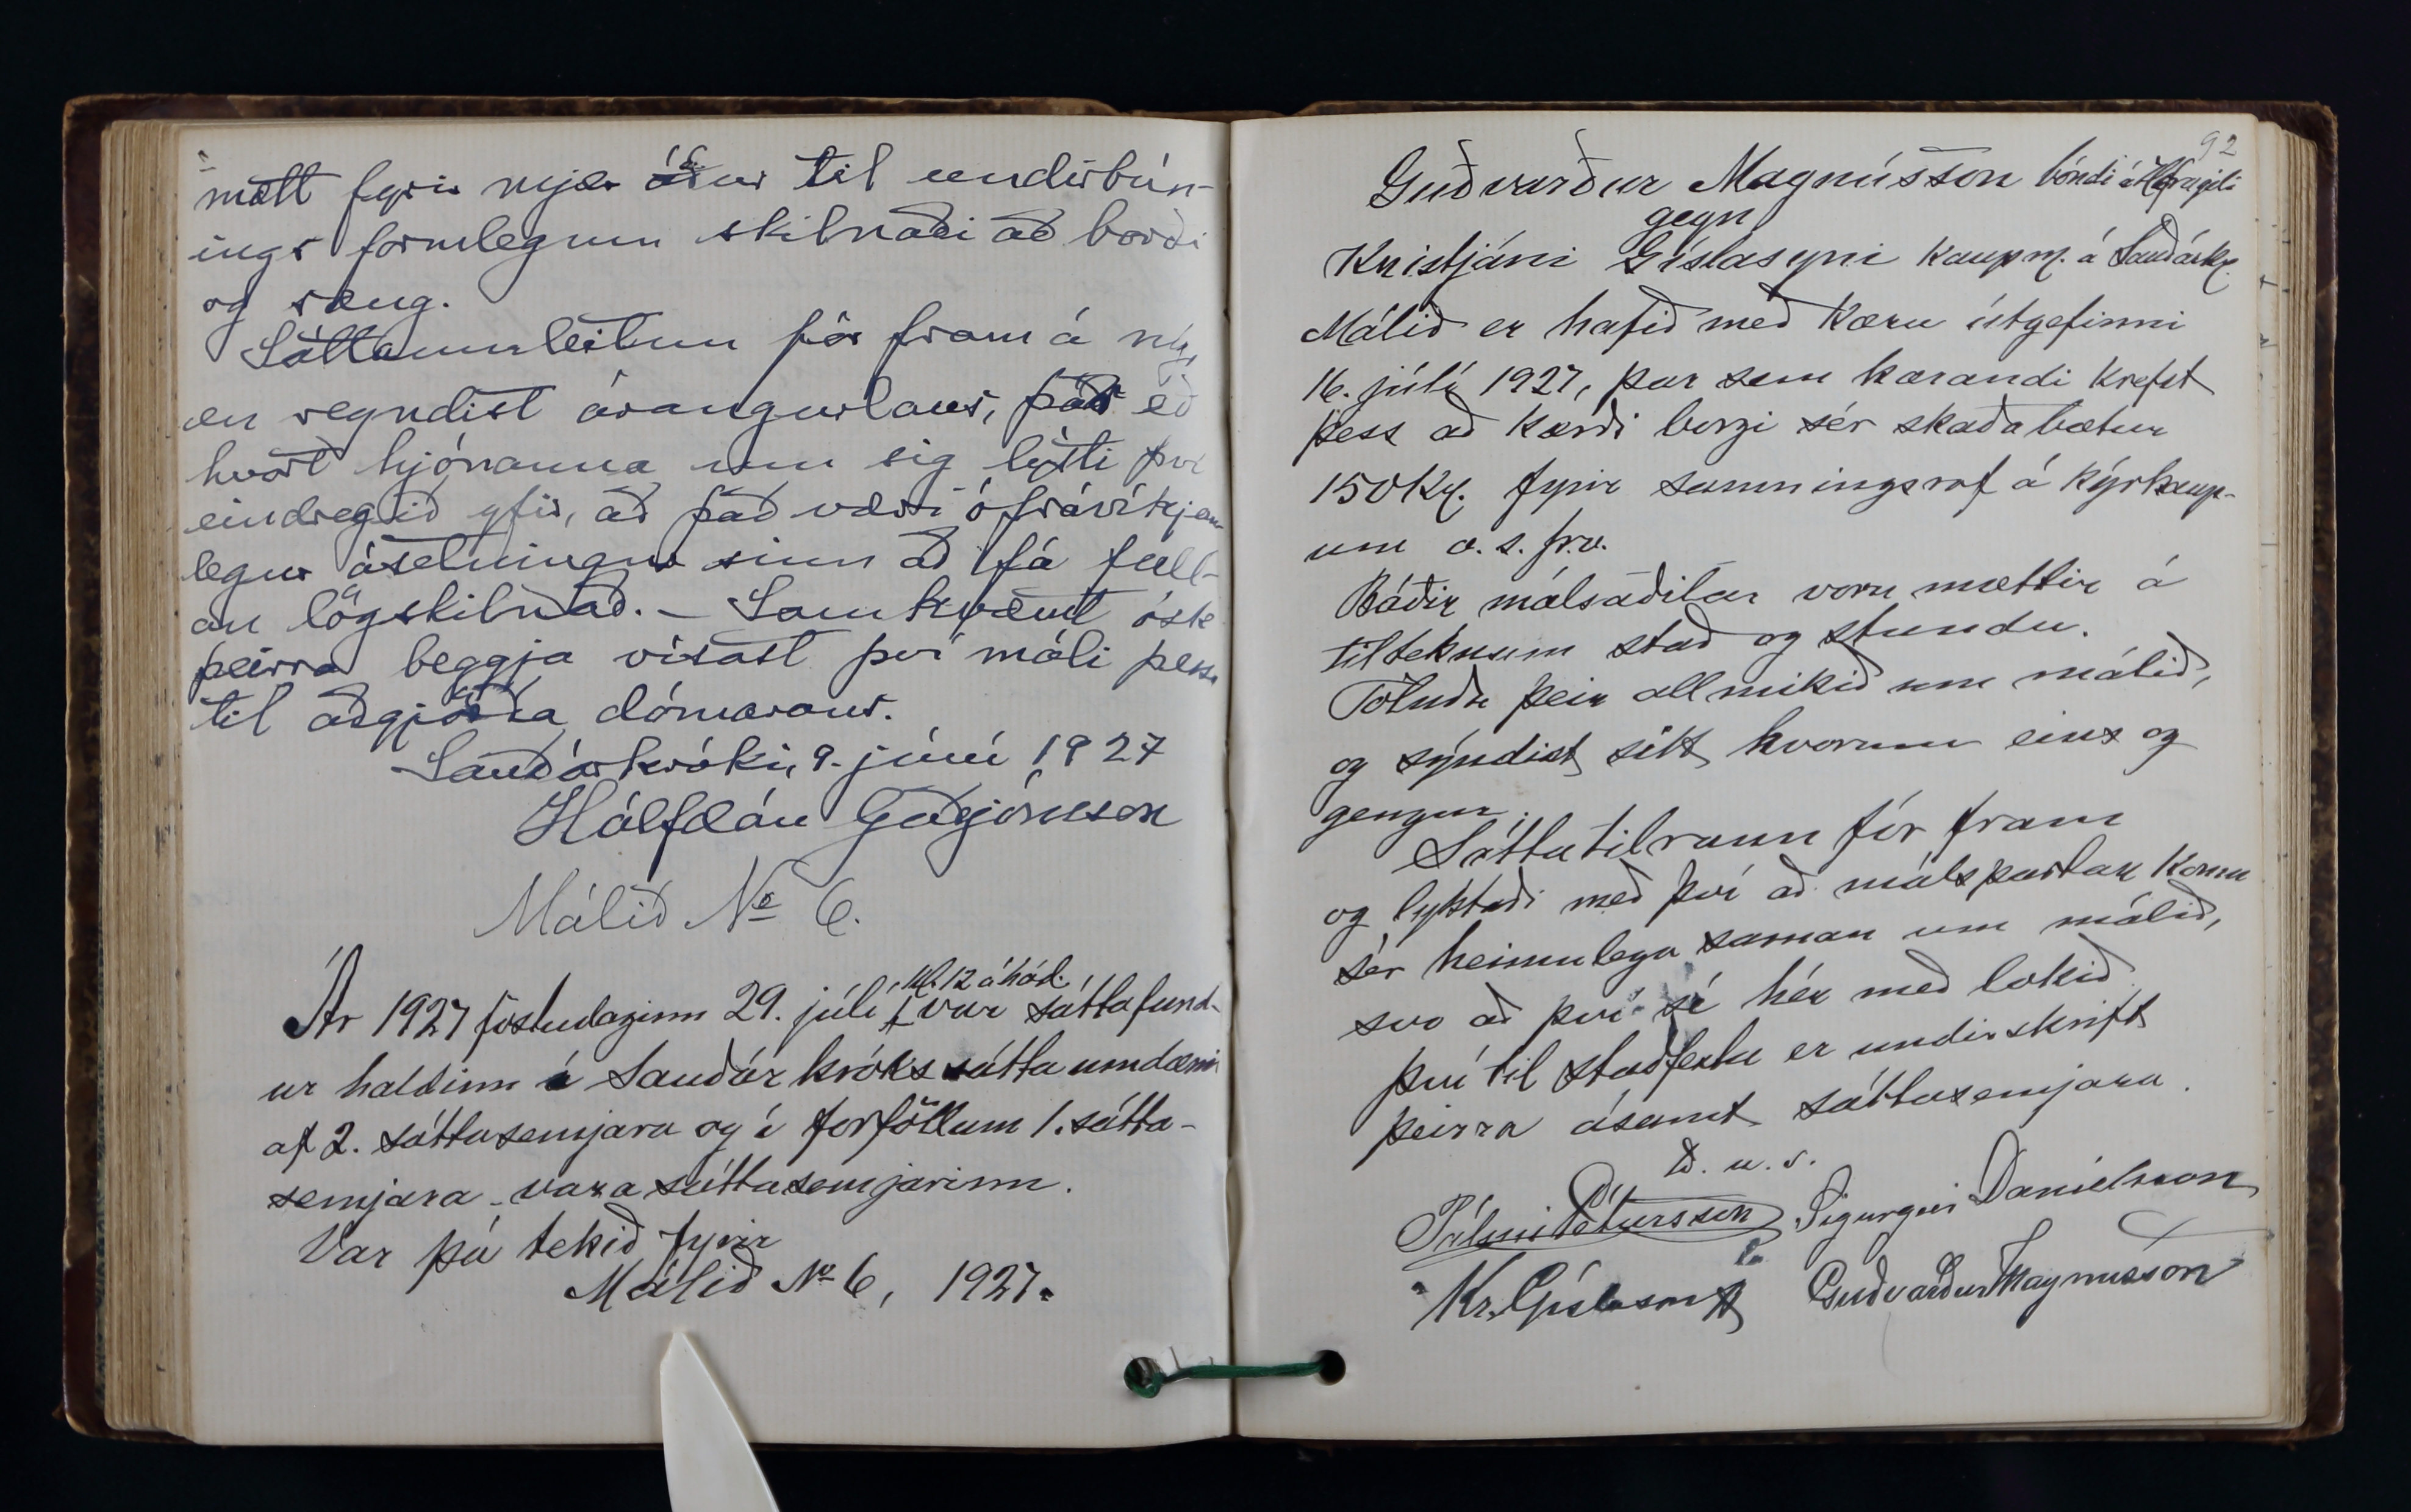 mætt fyrir mjer áður til undirbún-
ings formlegum skilnaði að borði
og sæng.
Sáttaumleitun fór fram á ný,
en reyndist árangurlaus, þar eð
hvort hjónanna um sig lýsti því
eindregið yfir, að það væri ófrávíkjan-
legur ásetningur sinn að fá full-
an lögskilnað. – Samkvæmt ósk
þeirra beggja vísast því máli þessu
til aðgjörða dómarans.
Sauðárkróki, 9. júní 1927
Hálfdán Guðjónsson
Málið No 6.
Ár 1927 föstudaginn 29. júlí, kl. 12 á hád. var sáttafund-
ur haldinn í Sauðárkróks sáttaumdæmi
af 2. sáttasemjara og í forföllum 1. sátta-
semjara - varasáttasemjarinn.
Var þá tekið fyrir
Málið No 6, 1927.
92
Guðvarður Magnússon bóndi á Hafragili
gegn
Kristjáni Gíslasyni kaupm. á Sauðárkr.
Málið er hafið með kæru útgefinni
16. júlí 1927, þar sem kærandi krefst
þess að kærði borgi sér skaðabætur
150 Kr. fyrir samningsrof á kýrkaup-
um o. s. frv.
Báðir málsaðilar voru mættir á
tilteknum stað og stundu.
Töluðu þeir allmikið um málið,
og sýndist sitt hvorum eins og
gengur.
Sáttatilraun fór fram
og lyktaði með því að málspartar komu
sér heimulega saman um málið,
svo að því sé hér með lokið
því til staðfestu er undirskrift
þeirra ásamt sáttasemjara.
D. u. s.
Pálmi Pétursson Sigurgeir Daníelsson
Kr. Gíslason Guðvarður Magnússon